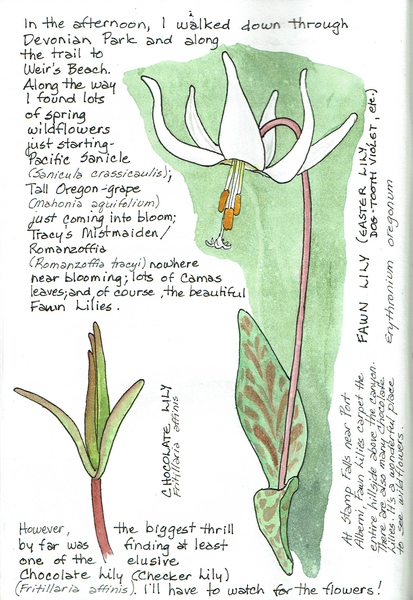 In the afternoon, I walked down through
Devonian Park and along
the trail to
Weir's Beach.
Along the way
I found lots
of spring
wildflowers
just starting-
Pacific Sanicle
(Sanicula crassicaulis);
Tall Oregon-grape
(Mahonia aquifolium)
just coming into bloom;
Tracy's Mistmaiden/
Romanzoffia
(Romanzoffia tracyi) nowhere
near blooming; lots of Camas
leaves; and of course, the beautiful
Fawn Lilies.
FAWN LILY (EASTER LILY,
DOG-TOOTH VIOLET, etc.)
Erythronium oregonum
At Stamp Falls near Port
Alberni, Fawn Lilies carpet the
entire hillside above the canyon.
There are also many chocolate
lilies. It's a wonderful place
to see wildflowers.
CHOCOLATE LILY
Fritillaria affinis
However, the biggest thrill
by far was finding at least
one of the elusive
Chocolate Lily (Checker Lily)
(Fritillaria affinis). I'll have to watch for the flowers!